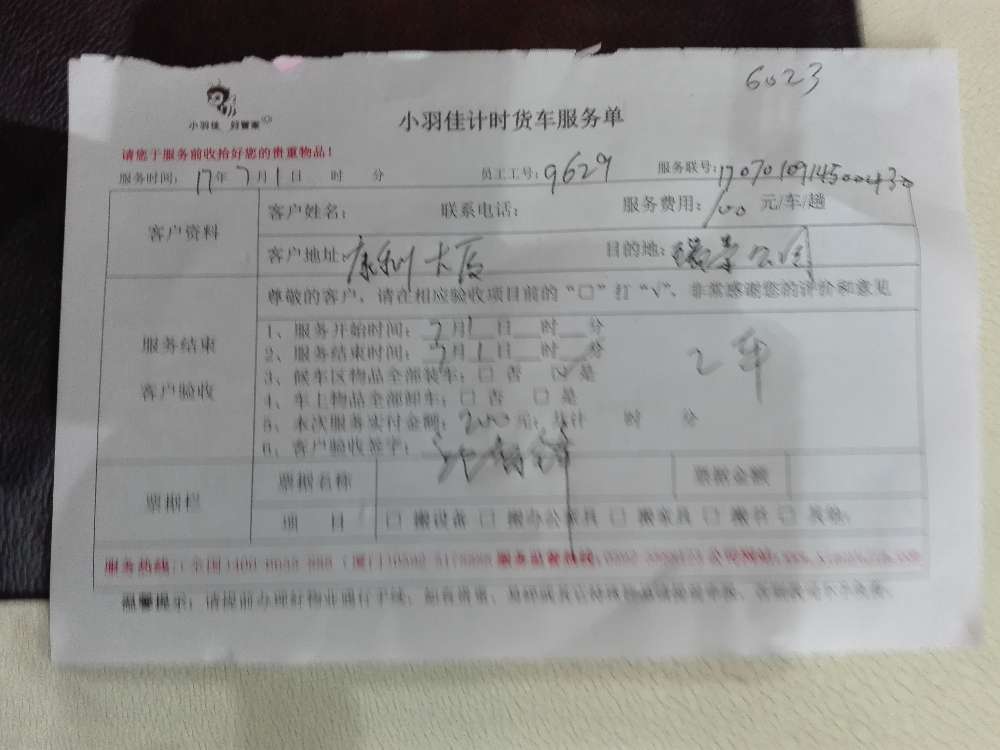 6023
小羽佳 好管家
小羽佳计时货车服务单
请您于服务前收拾好您的贵重物品!
服务时间: 17年7月1日 时 分 员工工号: 9629 服务联号: 170701091450
客户资料
客户姓名: 联系电话: 服务费用: 100 元/车/趟
客户地址: 康利大厦 目的地: 瑞景公园
尊敬的客户,请在相应验收项目前的“□”打“√”,非常感谢您的评价和意见
服务结束
客户验收
1、服务开始时间: 7月1日 时 分
2、服务结束时间: 7月1日 时 分
3、候车区物品全部装车: □ 否 ☑ 是
2车
4、车上物品全部卸车: □ 否 □ 是
5、本次服务实付金额: 200元; 共计 时 分
6、客户验收签字:
票据栏
票据名称 票据金额
项 目 □ 搬设备 □ 搬办公家具 □ 搬家具 □ □ 其他:
服务热线: 全国
温馨提示: 请提前办理好物业通行手续,